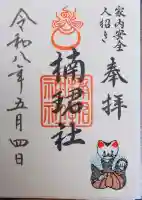 奉拝
家内安全
人招き
楠珺社
令和八年五月四日